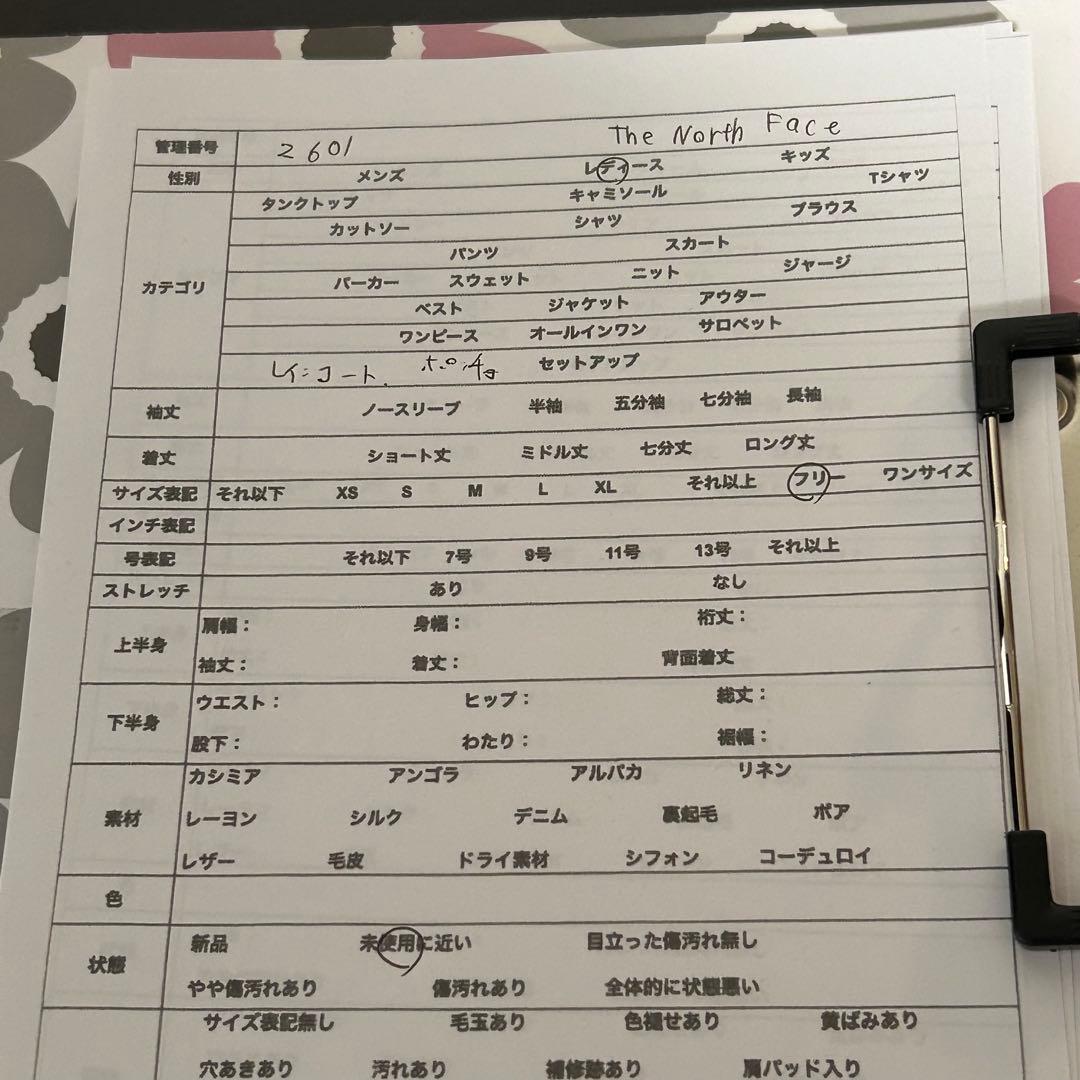 管理番号 2601 The North Face
性別 メンズ レディース キッズ
カテゴリ タンクトップ キャミソール Tシャツ
カットソー シャツ ブラウス
パンツ スカート
パーカー スウェット ニット ジャージ
ベスト ジャケット アウター
ワンピース オールインワン サロペット
レインコート. セットアップ
袖丈 ノースリーブ 半袖 五分袖 七分袖 長袖
着丈 ショート丈 ミドル丈 七分丈 ロング丈
サイズ表記 それ以下 XS S M L XL それ以上 フリー ワンサイズ
インチ表記
号表記 それ以下 7号 9号 11号 13号 それ以上
ストレッチ あり なし
上半身 肩幅： 身幅： 裄丈：
袖丈： 着丈： 背面着丈
下半身 ウエスト： ヒップ： 総丈：
股下： わたり： 裾幅：
素材 カシミア アンゴラ アルパカ リネン
レーヨン シルク デニム 裏起毛 ボア
レザー 毛皮 ドライ素材 シフォン コーデュロイ
色
状態 新品 未使用に近い 目立った傷汚れ無し
やや傷汚れあり 傷汚れあり 全体的に状態悪い
サイズ表記無し 毛玉あり 色褪せあり 黄ばみあり
穴あきあり 汚れあり 補修跡あり 肩パッド入り